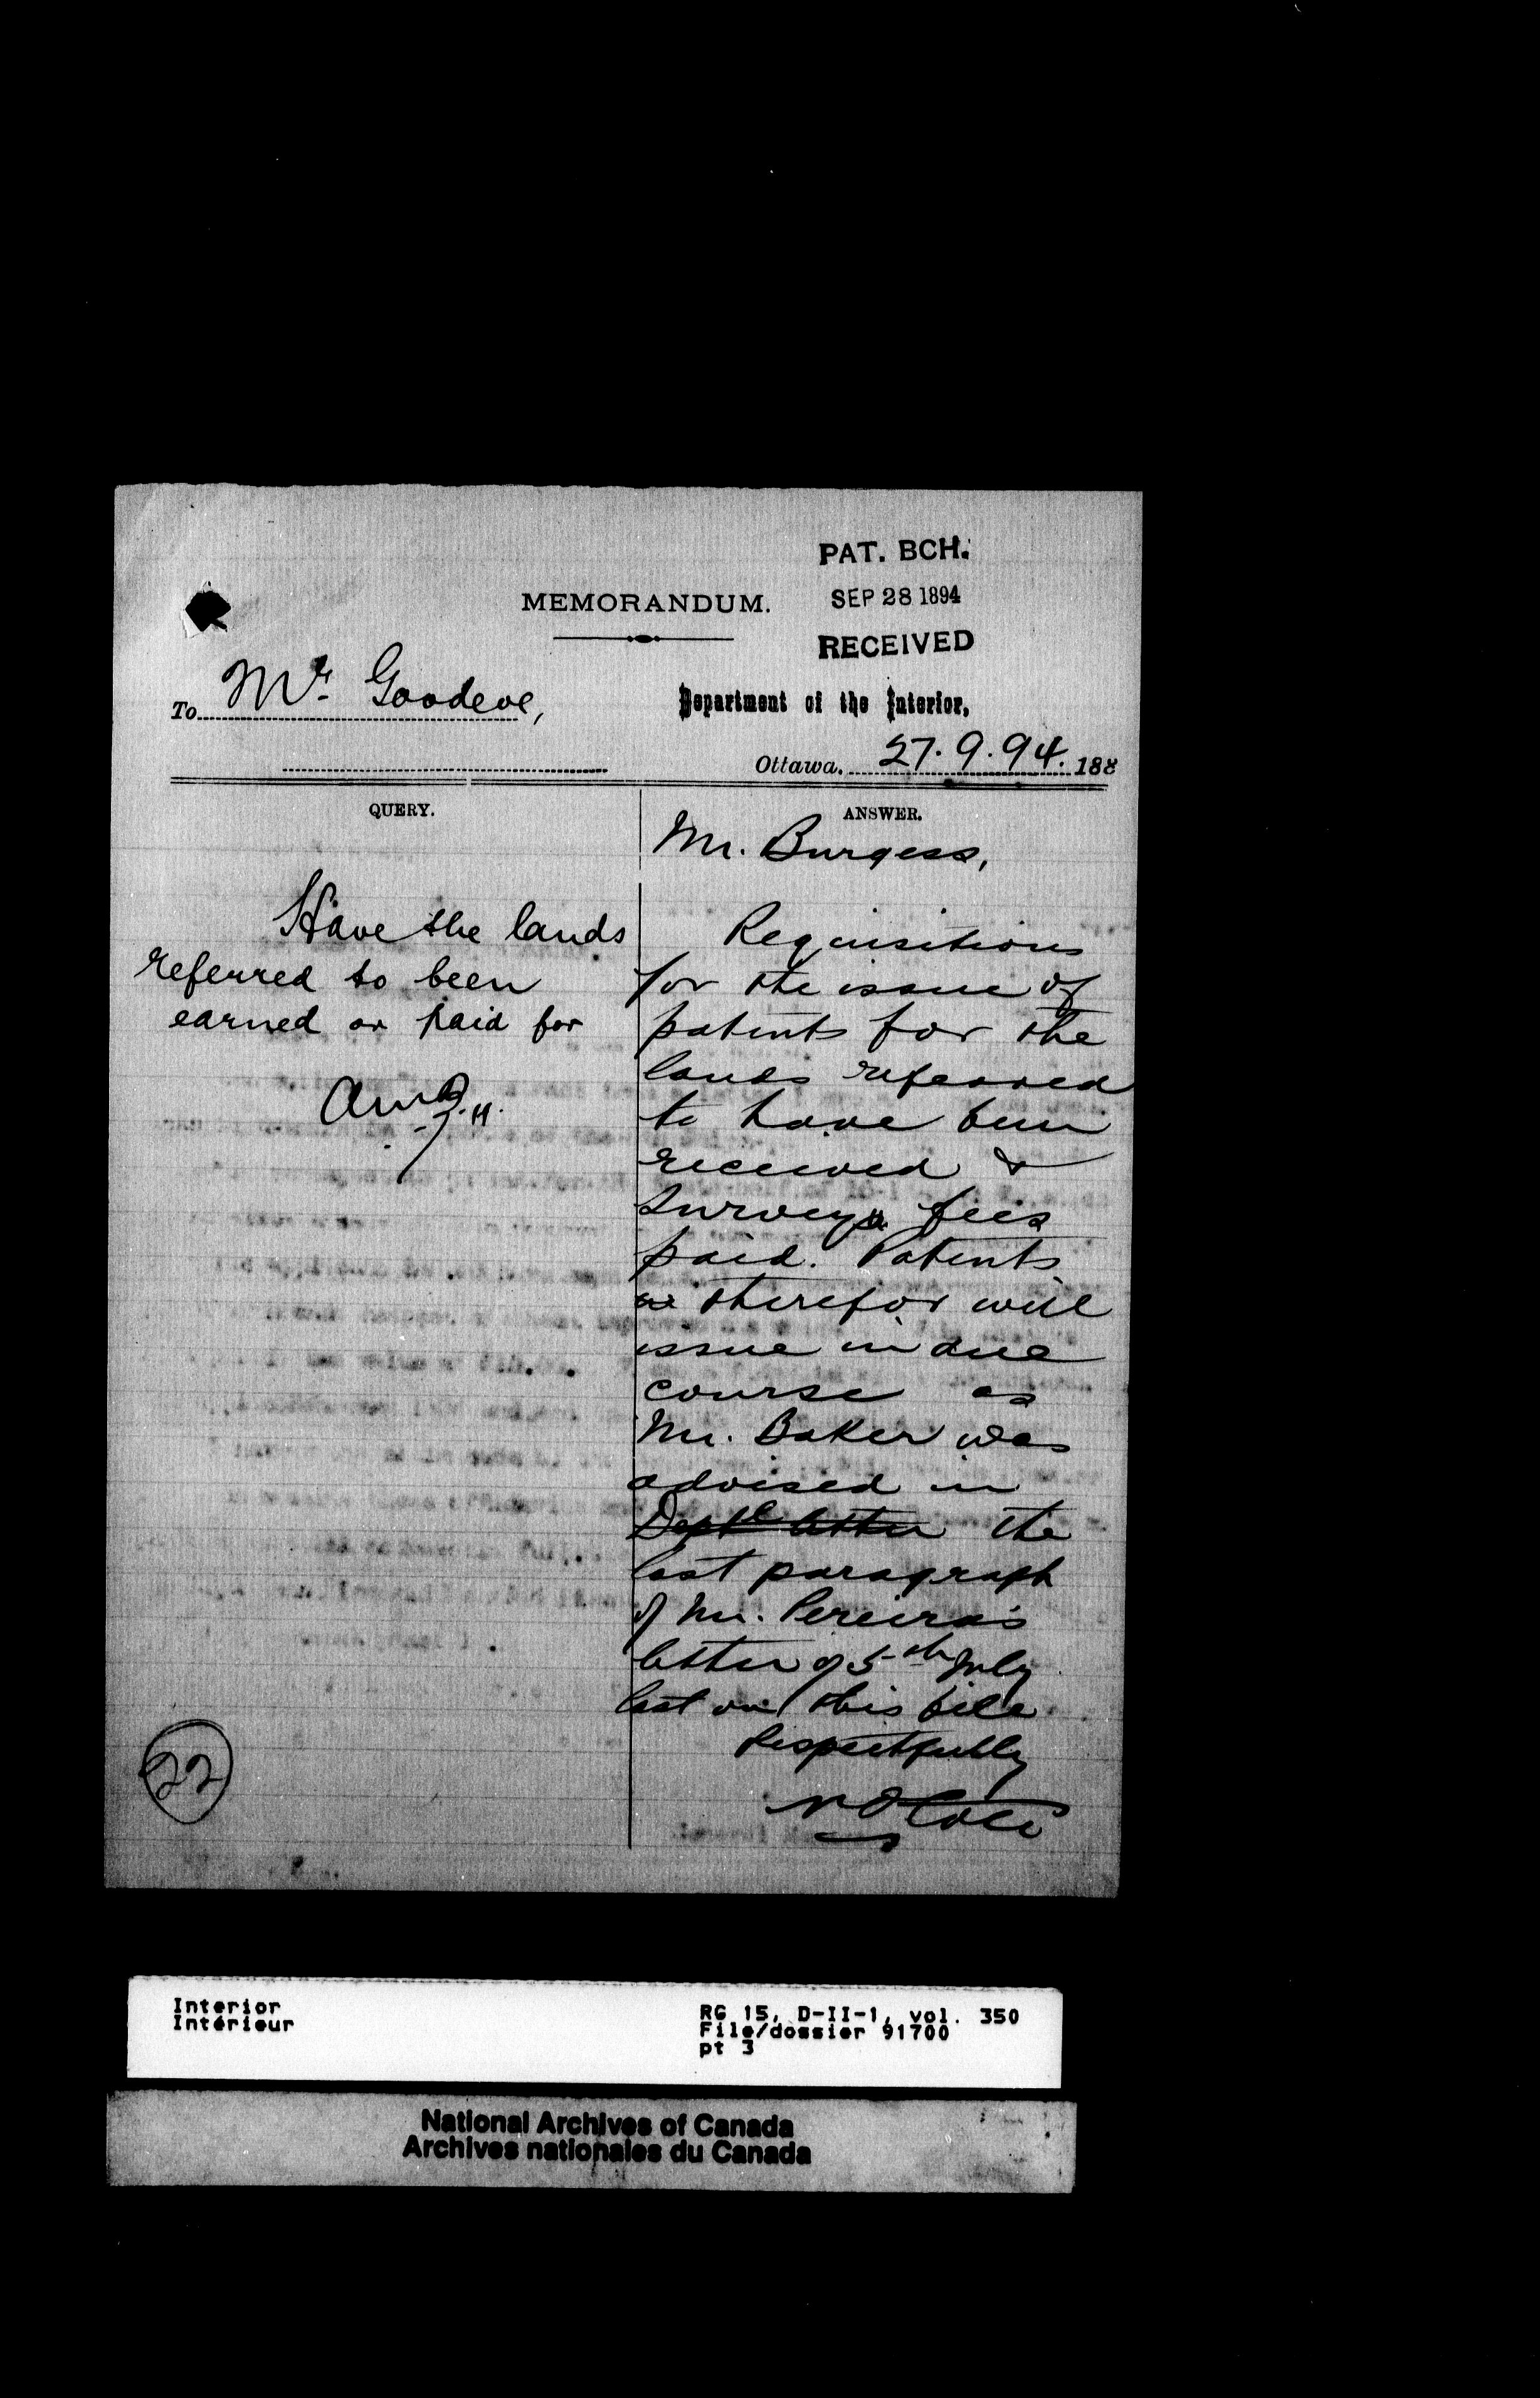 PAT. BCH.
SEP 28 1894
RECEIVED
MEMORANDUM.
To Mr. Goodeve,
Department of the Interior,
Ottawa, 27.9.94. 188
QUERY.
Have the lands
referred to been
earned or paid for
AMB.
ANSWER.
Mr. Burgess,
Requisitions
for the issue of
patents for the
lands referred
to have been
received &
survey fees
paid. Patents
therefor will
issue in due
course as
Mr. Baker was
advised in
Deptl letter the
last paragraph
of Mr. Pereira's
letter of 5th July
last on this file
Respectfully
N O Coté
22
Interior
Intérieur
RG 15, D-II-1, vol. 350
File/dossier 91700
pt 3
National Archives of Canada
Archives nationales du Canada